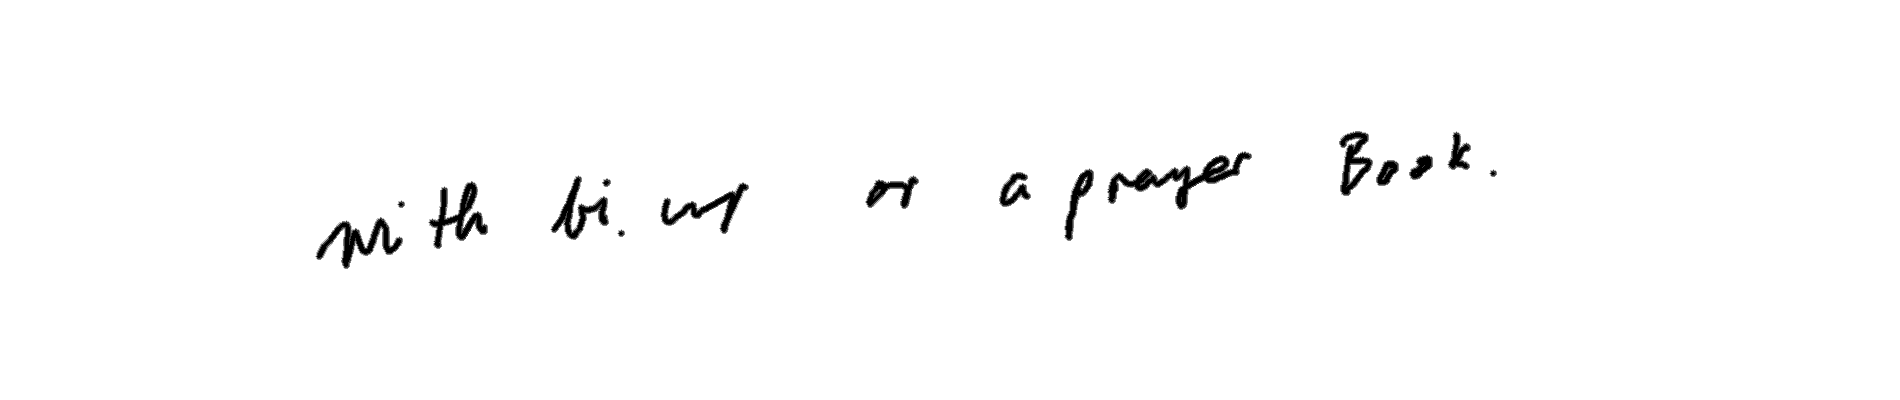 with or a prayer Book.